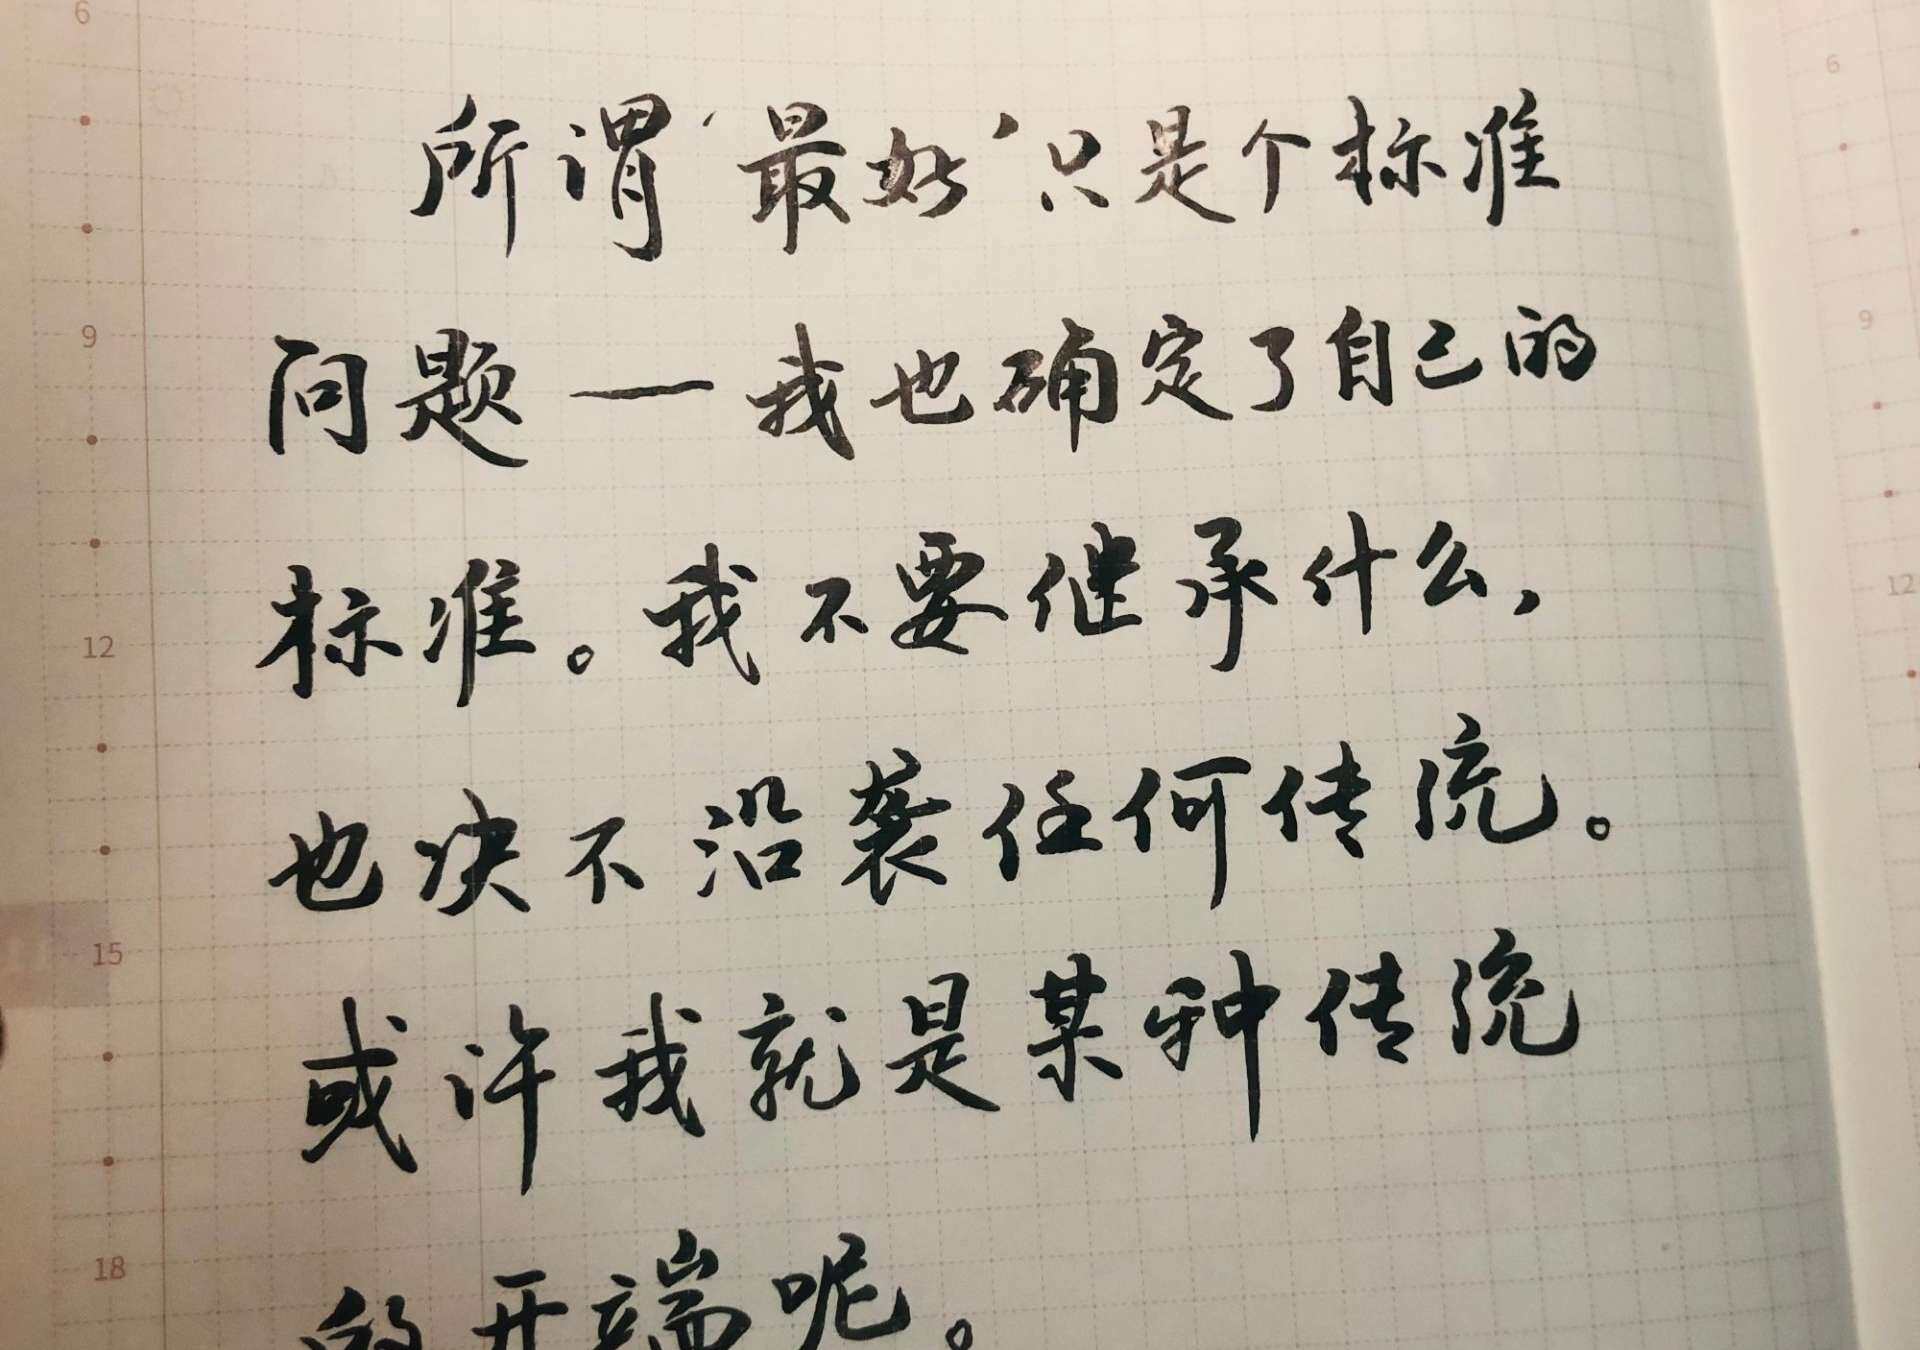 6
所谓'最好'只是个标准
9
问题—我也确定了自己的
标准。我不要继承什么,
12
也决不沿袭任何传统。
15
或许我就是某种传统
18
的开端呢。
6
9
12